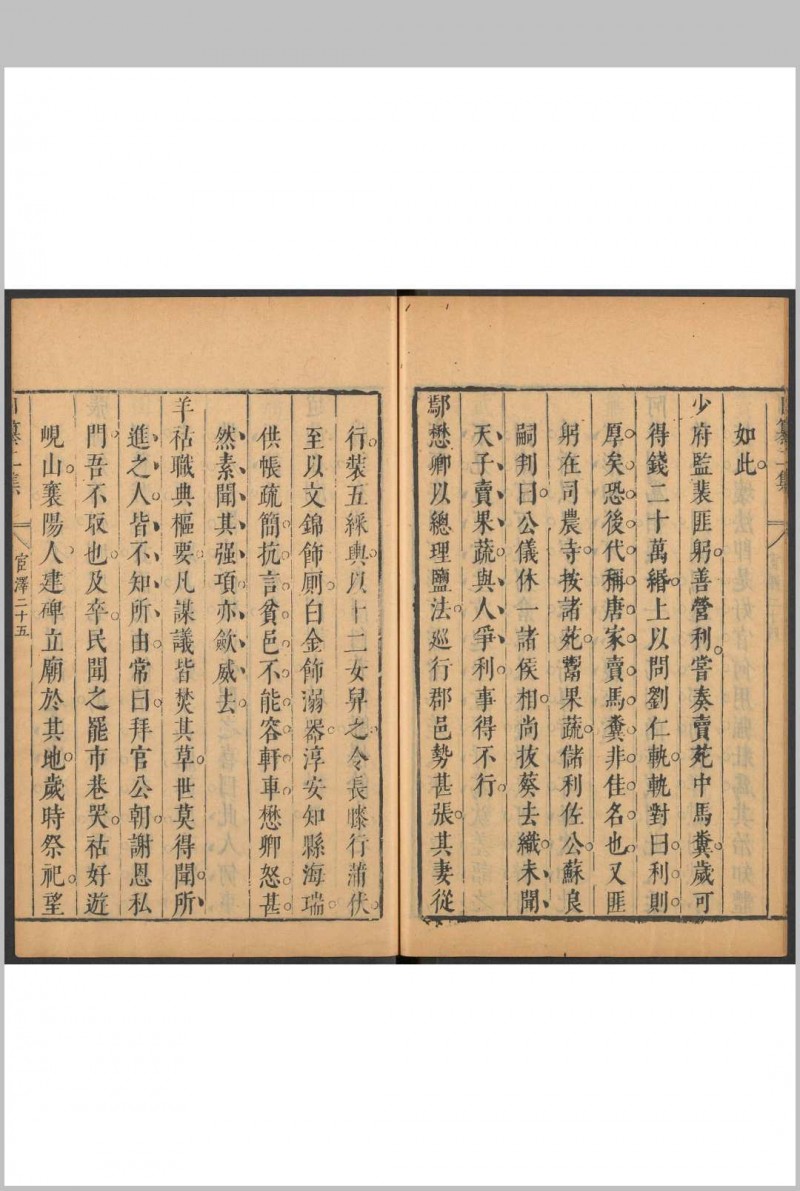 如此
少府監裴匪躬善營利嘗奏賣苑中馬糞歲可
得錢二十萬緡上以問劉仁軌軌對曰利則
厚矣恐後代稱唐家賣馬糞非佳名也又匪
躬在司農寺按諸苑鬻果蔬儲利佐公蘇良
嗣判曰公儀休一諸侯相尚拔葵去織未聞
天子賣果蔬與人爭利事得不行
鄢懋卿以總理鹽法巡行郡邑勢甚張其妻從
行裝五綵輿以十二女舁之令長膝行蒲伏
至以文錦飾厠白金飾溺器淳安知縣海瑞
供帳疏簡抗言貧邑不能容軒車懋卿怒甚
然素聞其强項亦歛威去
羊祜職典樞要凡謀議皆焚其草世莫得聞所
進之人皆不知所由常曰拜官公朝謝恩私
門吾不取也及卒民聞之罷市巷哭祜好遊
峴山襄陽人建碑立廟於其地歲時祭祀望
纂二集
宦澤二十五